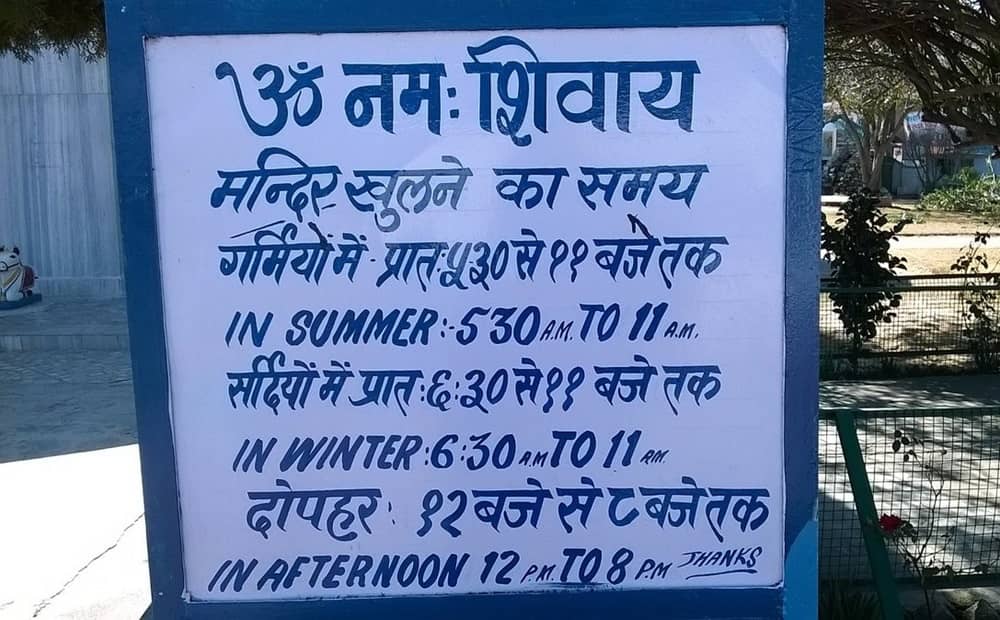 ॐ नमः शिवाय
मन्दिर खुलने का समय
गर्मियों में - प्रातः ५ ३० से ११ बजे तक
IN SUMMER:- 5 30 A.M. TO 11 A.M.
सर्दियों में प्रातः ६:३० से ११ बजे तक
IN WINTER: 6:30 A.M TO 11 P.M.
दोपहर: १२ बजे से ८ बजे तक
IN AFTERNOON 12 P.M. TO 8 P.M THANKS